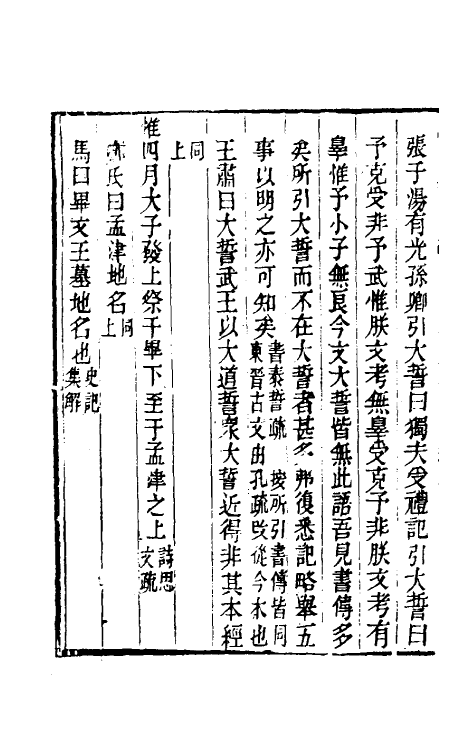 張于湯有光孫卿引大誓曰獨夫受禮記引大誓曰
予克受非予武惟朕文考無辠受克予非朕文考有
辠惟予小子無良今文大誓皆無此語吾見書傳多
矣所引大誓而不在大誓者甚多弗復悉記略舉五
事以明之亦可知矣書泰誓疏 按所引書傳皆同東晉古文由孔疏改從今本也
王肅曰大誓武王以大道誓眾大誓近得非其本經
同上
惟四月太子發上祭于畢下至于孟津之上詩思文疏
馬氏曰孟津地名同上
馬曰畢文王墓地名也史記集解